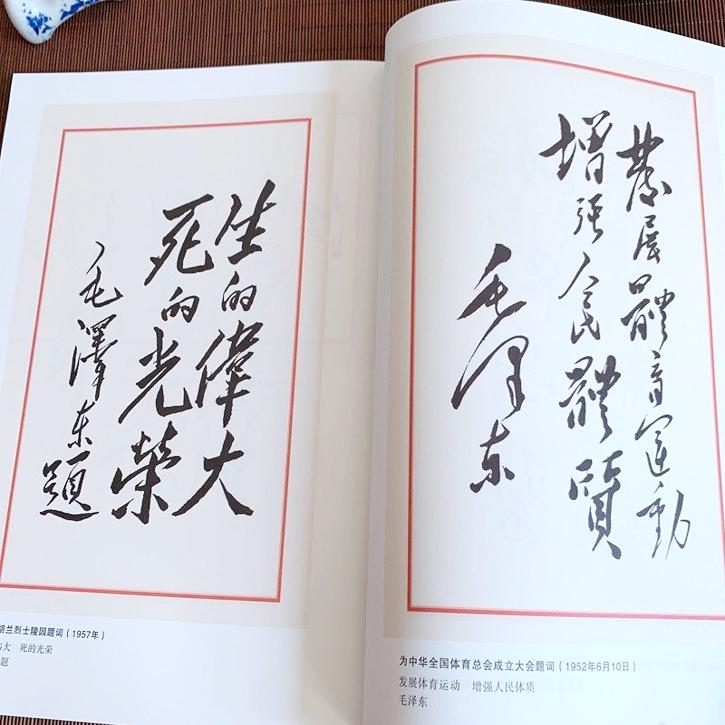 生的偉大
死的光榮
毛澤东題
胡兰烈士陵园题词（1957年）
伟大　死的光荣
题
發展體育運動
增强人民體質
毛泽东
为中华全国体育总会成立大会题词（1952年6月10日）
发展体育运动　增强人民体质
毛泽东